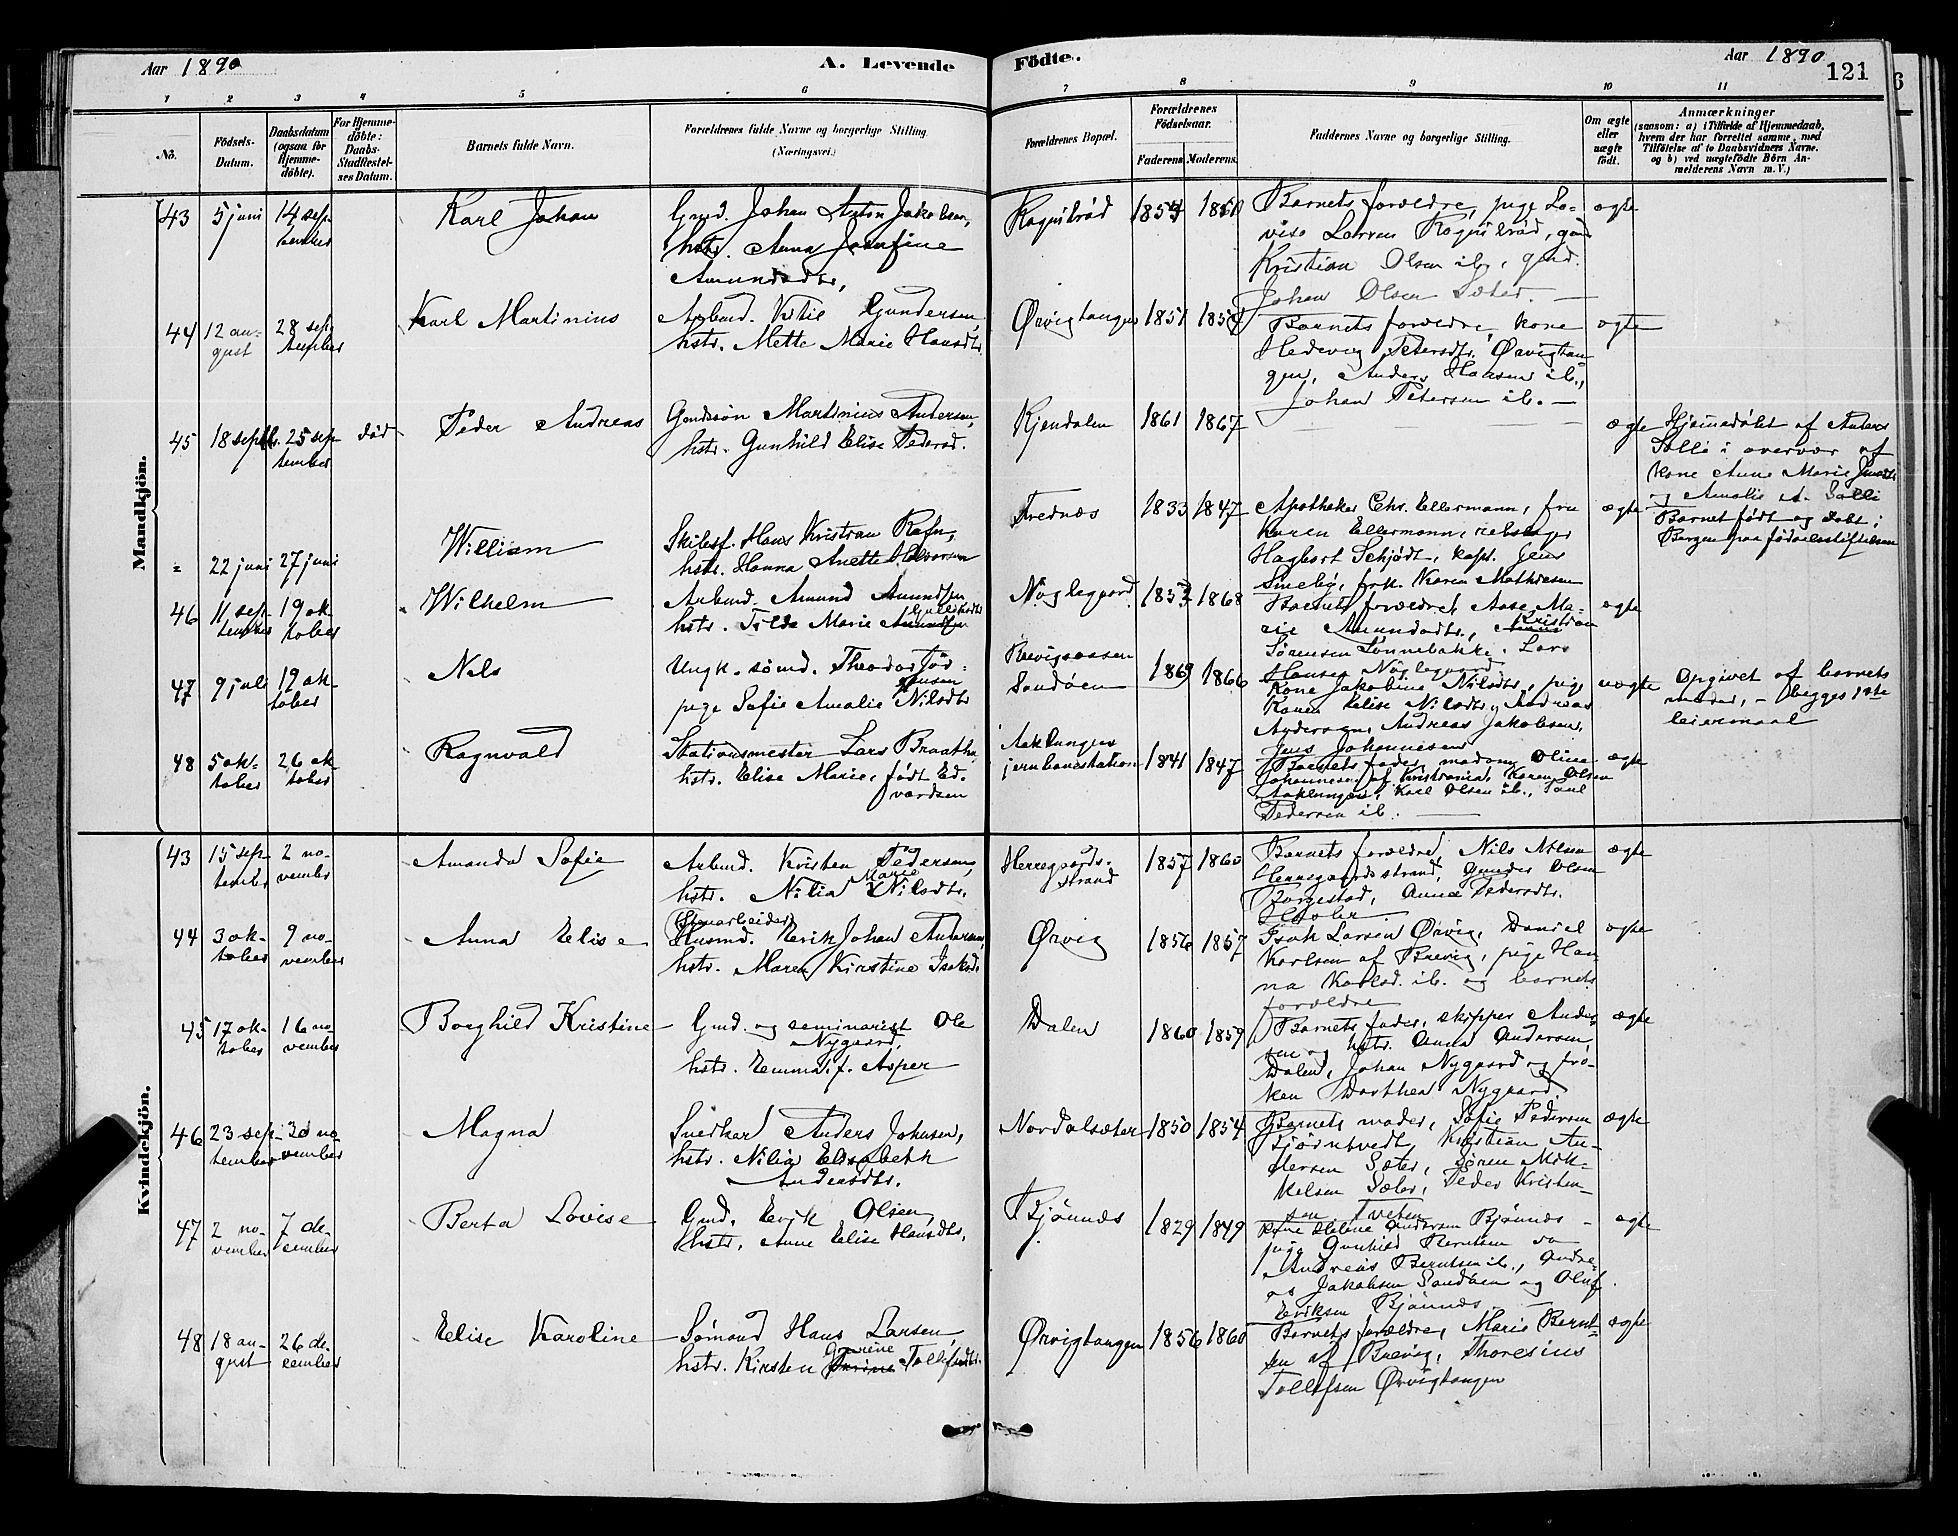 Aar 1890
A. Levende
Födte.
Aar 1890
121
1 2 3 4 5 6 7 8 9 10 11
No.
Födsels-
Datum.
Daabsdatum
(ogsaa for
Hjemme-
döbte).
For Hjemme-
döbte:
Daabs-
Stadfestel-
ses Datum.
Barnets fulde Navn.
Forældrenes fulde Navne og borgerlige Stilling
(Næringsvei.)
Forældrenes Bopæl.
Forældrenes
Födselsaar.
Faderens Moderens.
Faddernes Navne og borgerlige Stilling.
Om ægte
eller
uægte
födt.
Anmærkninger
(saasom: a) i Tilfælde af Hjemmedaab,
hvem der har forrettet samme, med
Tilföielse af to Daabsvidners Navne.
og b) ved uægtefödte Börn An-
melderens Navn m. V.)
Mandkjön.
43 5 juni 14 sep-
tember
Karl Johan
Gmd. Johan Anton Jakobsen,
hstr. Anna Josefine
Amundsdtr,
Rognsbråd
Barnets forældre, pige Lo-
vise Larsen Rognsbråd, gmd
Kristian Olsen ib, gmd.
Johan Olsen Sæter. —
ægte
44 12 au-
gust
28 sep-
tember
Karl Martinius
Arbmd. Kitil Gundersen,
hstr. Mette Marie Hansdtr.
Ørvigtangen 1851
Barnets forældre, kone
Hedevig Petersdtr. Ørvigtan-
gen, Anders Hansen ib.,
Johan Petersen ib. —
ægte
45 18 septbr. 25 sep-
tember
död
Peder Andreas
Gmdssön Martinius Andersen,
hstr. Gunhild Elise Pedersd.
Kjendalen 1861 1867
ægte
Hjemmedöbt af Anders
Solli i overvær af
kone Anne Marie
og Amalie A. Solli
" 22 juni 27 juni
William
Skibsf. Hans Kristian Rafn,
hstr. Hanna Anette Halvorsen
Frednæs 1833 1847
Apotheker Chr. Ellermann, fru
Karen Ellermann, rebslager
Hagbart Schjödt, kapt. Jens
Smeby, frk. Karen Mathiesen
ægte
Barnet født og døbt i
Bergen paa fødselsstiftelsen
46 11 sep-
tember
19 ok-
tober
Wilhelm
Arbmd. Amund Amundsen
hstr. Tilda Marie
Nøglegaard 1868
Barnets forældre, Aase Ma-
rie Amundsdtr., Kristian
Sørensen Lønnebakke, Lars
Hansen Nøglegaard
ægte
47 9 juli 19 ok-
tober
Nels
Ungk. sømd. Theodor Jör-
gensen
pige Sofie Amalie Nilsdtr
Sandøen 1869 1866
Kone Jakobine Nilsdtr, pige
Karen Elise Nilsdtr, Andreas
Andersen, Andreas Jakobsen,
Jens Johannesen
uægte
Opgivet af barnets
moder, — begges 1ste
leiermaal
48 5 ok-
tober
26 ok-
tober
Ragnvald
Stationsmester Lars Braathe
hstr. Elise Marie, født Ed-
vardsen
Aaklungen
jernbanestation 1841 1847
Barnets fader, madam Oline
Johannesen af Kristiania, Karen Olsen
Aaklungen, Karl Olsen ib., Paul
Pedersen ib. —
ægte
Kvindekjön.
43 15 sep-
tember
2 no-
vember
Amanda Sofie
Arbmd. Kristen Pedersen,
hstr. Nilia Marie Nilsdtr.
Herregaards-
strand 1857 1860
Barnets forældre, Nils Nilsen
Herregaardsstrand, Gunder Olsen
Borgestad, Anne Pedersdtr.
ægte
44 3 ok-
tober
9 no-
vember
Anna Elise
(Stenarbeider)
Husmd. Eerik Johan Andersen,
hstr. Maren Kirstine Isaksd.
Ørvig 1856 1857
Isak Larsen Ørvig, Daniel
Karlsen af Brevig, pige Han-
na Karlsd. ib. og barnets
forældre
ægte
45 17 ok-
tober
16 no-
vember
Borghild Kristine
Gmd. og seminarist Ole
Nygaard,
hstr. Emma, f. Asper
Dalen 1860 1859
Barnets fader, skipper Ander-
sen og hstr. Anna Andersen,
Dalen, Johan Nygaard og frö-
ken Dorthea Nygaard.
ægte
46 23 sep-
tember
30 no-
vember
Magna
Snedker Anders Johnsen,
hstr. Nilia Elisabeth
Andersdtr.
Nordalsæter 1850 1854
Barnets moder, Sofie Pedersen
Bjørntvedt, Kristian An-
dersen Sæter, Søren Mik-
kelsen Sæter, Peder Kristen-
sen Tveten
ægte
47 2 no-
vember
7 de-
cember
Berta Lovise
Gmd. Eerik Olsen,
Hstr. Anne Elise Hansdtr.
Bjønnes 1829 1849
Kone Helene Andersen Bjønnes —
pige Gunhild Berntsen og
Andreas Berntsen ib., Andre-
as Jakobsen Sandøen og Oluf
Eeriksen Bjønnes
ægte
48 18 au-
gust
26 de-
cember
Eelise Karoline
Sömand Hans Larsen
hstr. Kirsten Tollefsdtr.
Ørvigtangen 1856 1860
Barnets forældre, Marie Bernt-
sen af Brevig, Thoresius
Tollefsen Ørvigtangen
ægte